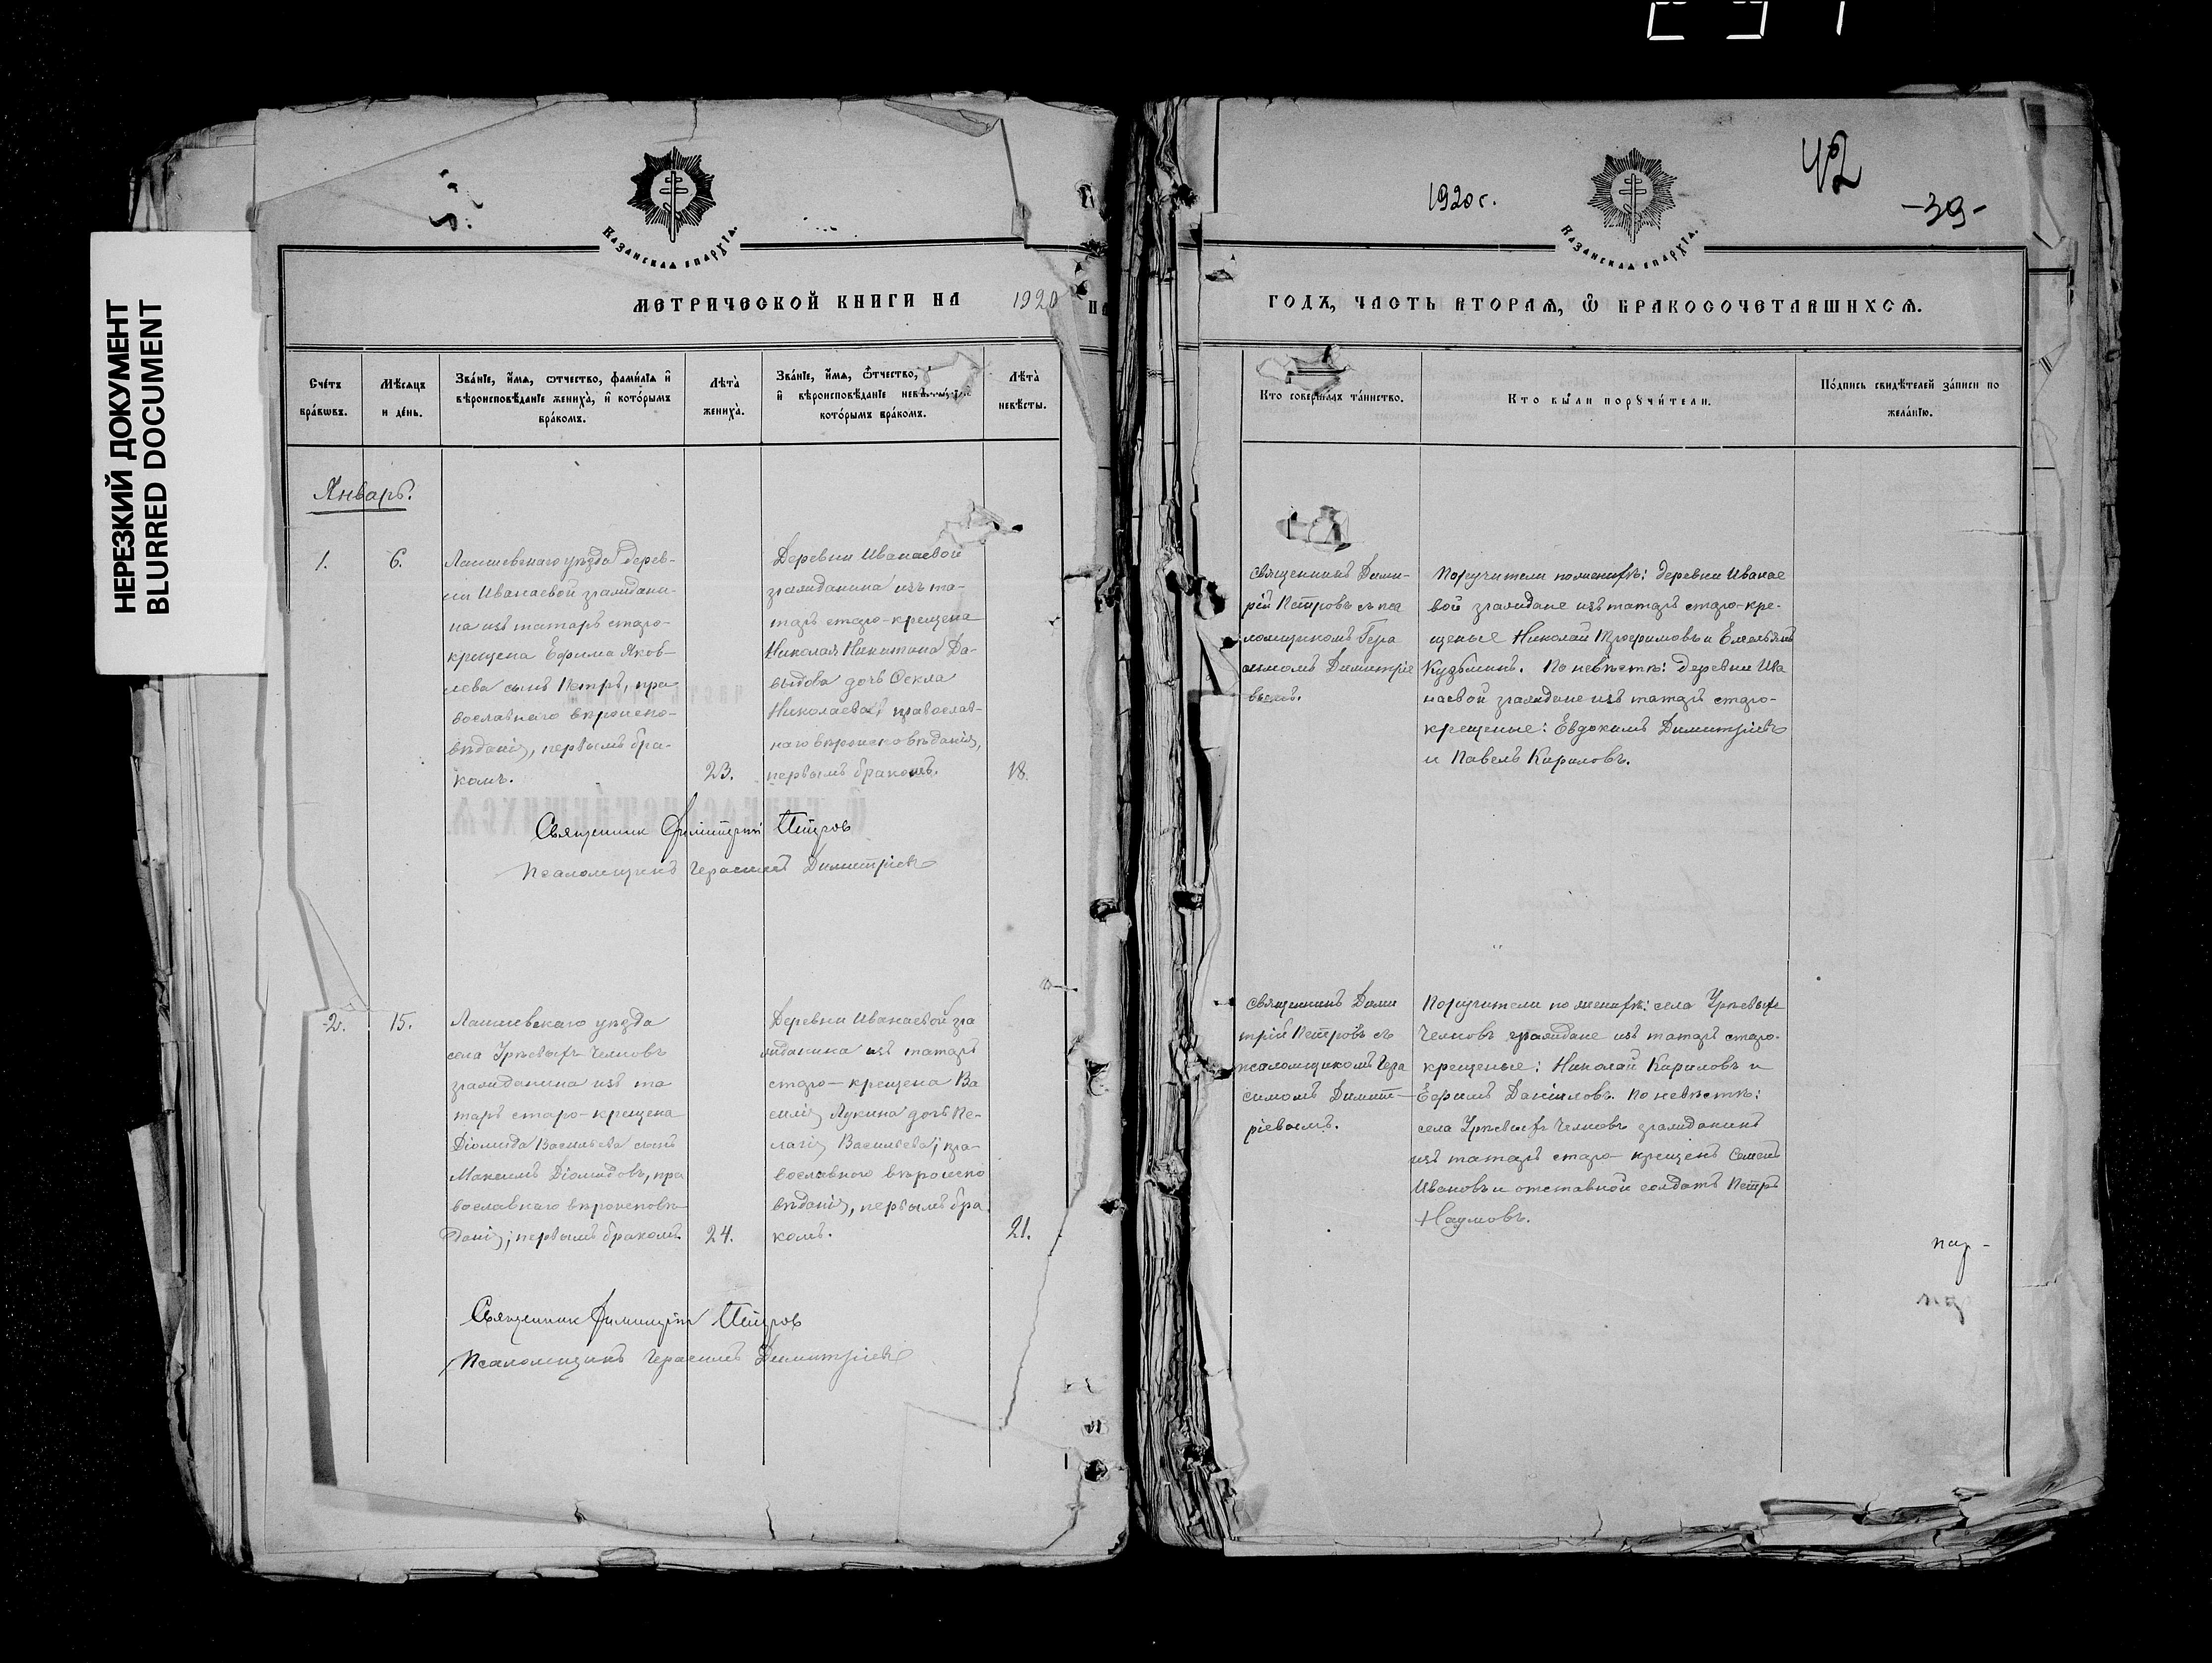 НЕРЕЗКИЙ ДОКУМЕНТ
BLURRED DOCUMENT
КАЗАНСКАѦ ЕПАРХІѦ.
МЕТРИЧЕСКОЙ КНИГИ НА 1920
Счетъ браковъ.
Мѣсяцъ и день.
Званіе, имя, отчество, фамилія и вѣроисповѣданіе жениха, и которымъ бракомъ.
Лѣта жениха.
Званіе, имя, отчество,
и вѣроисповѣданіе
которымъ бракомъ.
Лѣта невѣсты.
Январь.
1.
6.
Лаишевскаго уѣзда дерев-
ни Иванаевой граждани-
на изъ татаръ старо-
крещена Ефима Яков-
лева сынъ Петръ, пра
вославнаго вѣроиспо-
вѣданія, первымъ бра-
комъ.
23.
Деревни Иванаевой
гражданина изъ та-
таръ старо-крещена
Николая Никитина Да-
выдова дочь Фекла
Николаева, православ-
наго вѣроисповѣданія,
первымъ бракомъ.
18.
Священник Димитрий Петров
Псаломщикъ Герасимъ Димитріевъ
2.
15.
Лаишевскаго уѣзда
села Урѣевыхъ-Челновъ
гражданина изъ та
таръ старо-крещена
Діомида Васильева сынъ
Максимъ Діомидовъ, пра
вославнаго вѣроисповѣ
данія, первымъ бракомъ.
24.
Деревни Иванаевой гра
жданина изъ татаръ
старо-крещена Ва
силія Лукина дочь Пе-
лагія Васильева, пра-
вославного вѣроиспо
вѣданія, первымъ бра
комъ.
21.
Священник Димитрій Петров
Псаломщикъ Герасимъ Димитріевъ
1920 г.
42
-39-
КАЗАНСКАѦ ЕПАРХІѦ.
ГОДЪ, ЧАСТЬ ВТОРАѦ, Ѿ БРАКОСОЧЕТАВШИХСѦ.
Кто совершалъ таинство.
Кто были поручители.
Подпись свидѣтелей записи по желанію.
Священникъ Дими-
рій Петровъ съ пса
ломщикомъ Гера
симомъ Димитріе
вымъ.
Поручители по женихѣ: деревни Иванае
вой граждане изъ татаръ старо-кре-
щеные Николай Трофимовъ и Емельянъ
Кузьминъ. По невѣстѣ: деревни Ива
наевой граждане изъ татаръ старо-
крещеные: Евдокимъ Димитріевъ
и Павелъ Кириловъ.
Священникъ Дими
трій Петровъ съ
псаломщикомъ Гера
симомъ Димит-
ріевымъ.
Поручители по женихѣ: села Урѣевыхъ
Челновъ граждане изъ татаръ старо-
крещеные: Николай Кириловъ и
Ефимъ Даніиловъ. По невѣстѣ:
села Урѣевыхъ Челновъ гражданинъ
изъ татаръ старо-крещенъ Семенъ
Ивановъ и отставной солдатъ Петръ
Наумовъ.